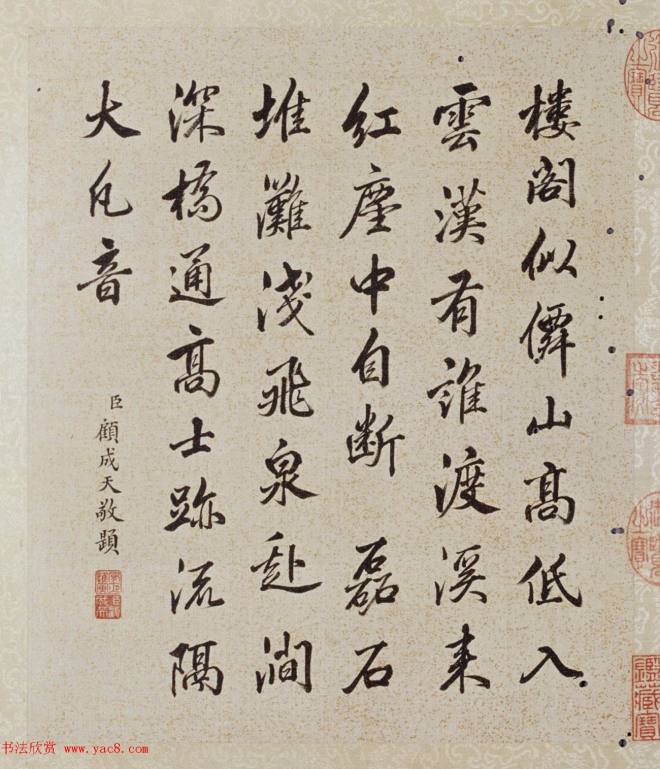 樓閣似僊山高低入
雲漢有誰渡溪来
紅塵中自断 磊石
堆灘淺飛泉赴澗
深橋通高士跡流隔
大凡音
臣顧成天敬題
鑑藏寶
书法欣赏 www.yac8.com